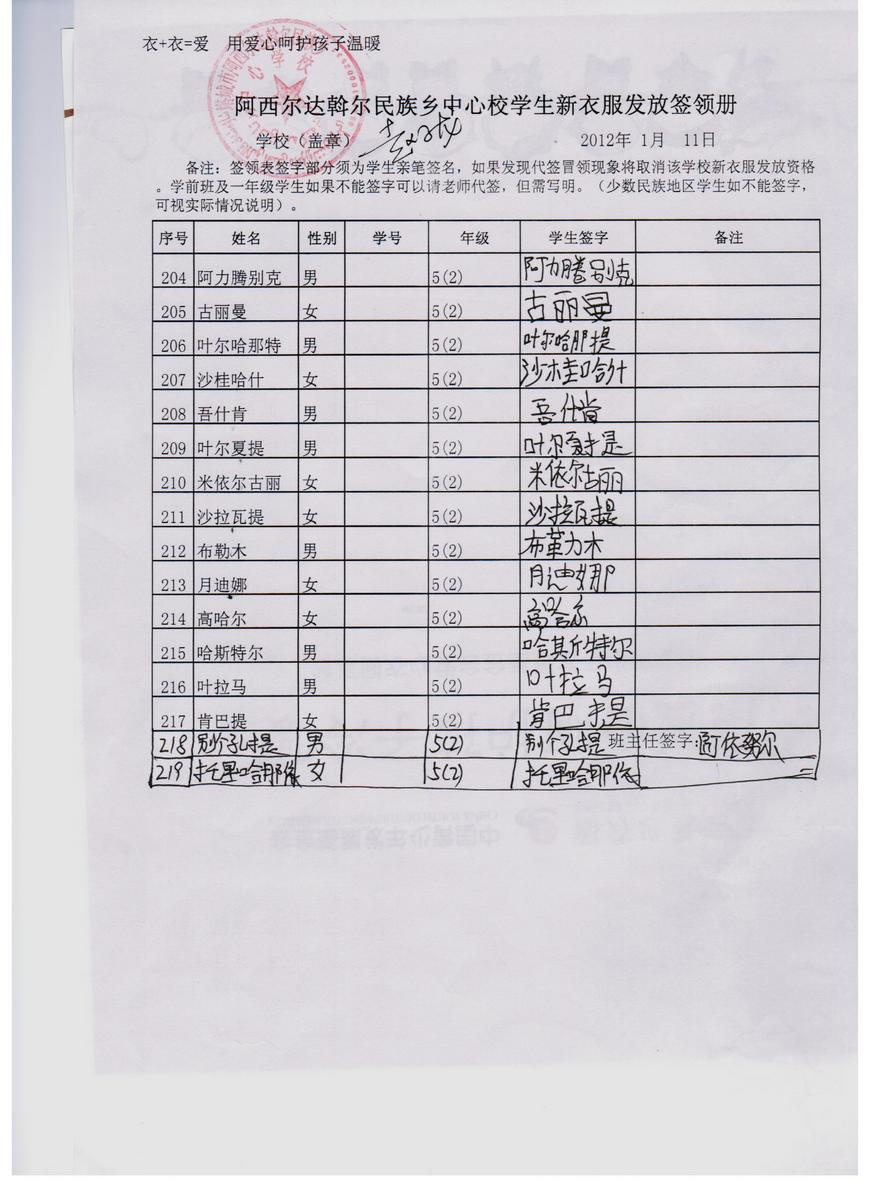 衣+衣=爱　用爱心呵护孩子温暖
阿西尔达斡尔民族乡中心校学生新衣服发放签领册
学校（盖章） 2012年 1月 11日
备注：签领表签字部分须为学生亲笔签名，如果发现代签冒领现象将取消该学校新衣服发放资格
。学前班及一年级学生如果不能签字可以请老师代签，但需写明。（少数民族地区学生如不能签字，
可视实际情况说明）。
序号 姓名 性别 学号 年级 学生签字 备注
204 阿力腾别克 男 5(2) 阿力腾别克
205 古丽曼 女 5(2) 古丽曼
206 叶尔哈那特 男 5(2) 叶尔哈那提
207 沙桂哈什 女 5(2) 沙木圭哈什
208 吾什肯 男 5(2) 吾什肯
209 叶尔夏提 男 5(2) 叶尔夏提
210 米依尔古丽 女 5(2) 米依尔古丽
211 沙拉瓦提 女 5(2) 沙拉瓦提
212 布勒木 男 5(2) 布革力木
213 月迪娜 女 5(2) 月迪娜
214 高哈尔 女 5(2) 高哈尔
215 哈斯特尔 男 5(2) 哈其斤特尔
216 叶拉马 男 5(2) 叶拉马
217 肯巴提 女 5(2) 肯巴提
218 别个孔提 男 5(2) 别个孔提 班主任签字:阿依努尔
219 托里哈那依 女 5(2) 托里哈那依